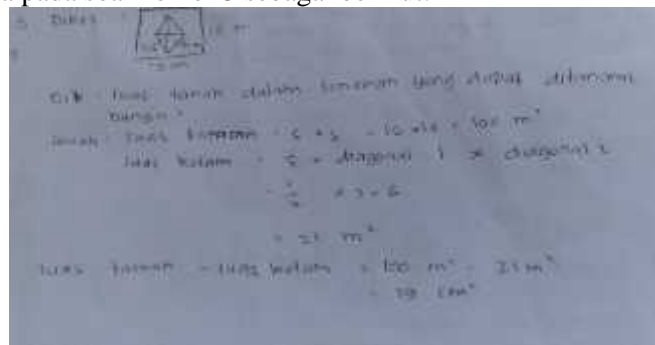 Diket
10 m
Dit : luas tanah dalam tanaman yang dapat ditanami
bunga ?
Jawab : luas taman = s × s = 10 × 10 = 100 m²
luas kolam = × diagonal 1 × diagonal 2
= × 7 × 6
= 21 m²
luas taman - luas kolam = 100 m² - 21 m²
= 79 cm²